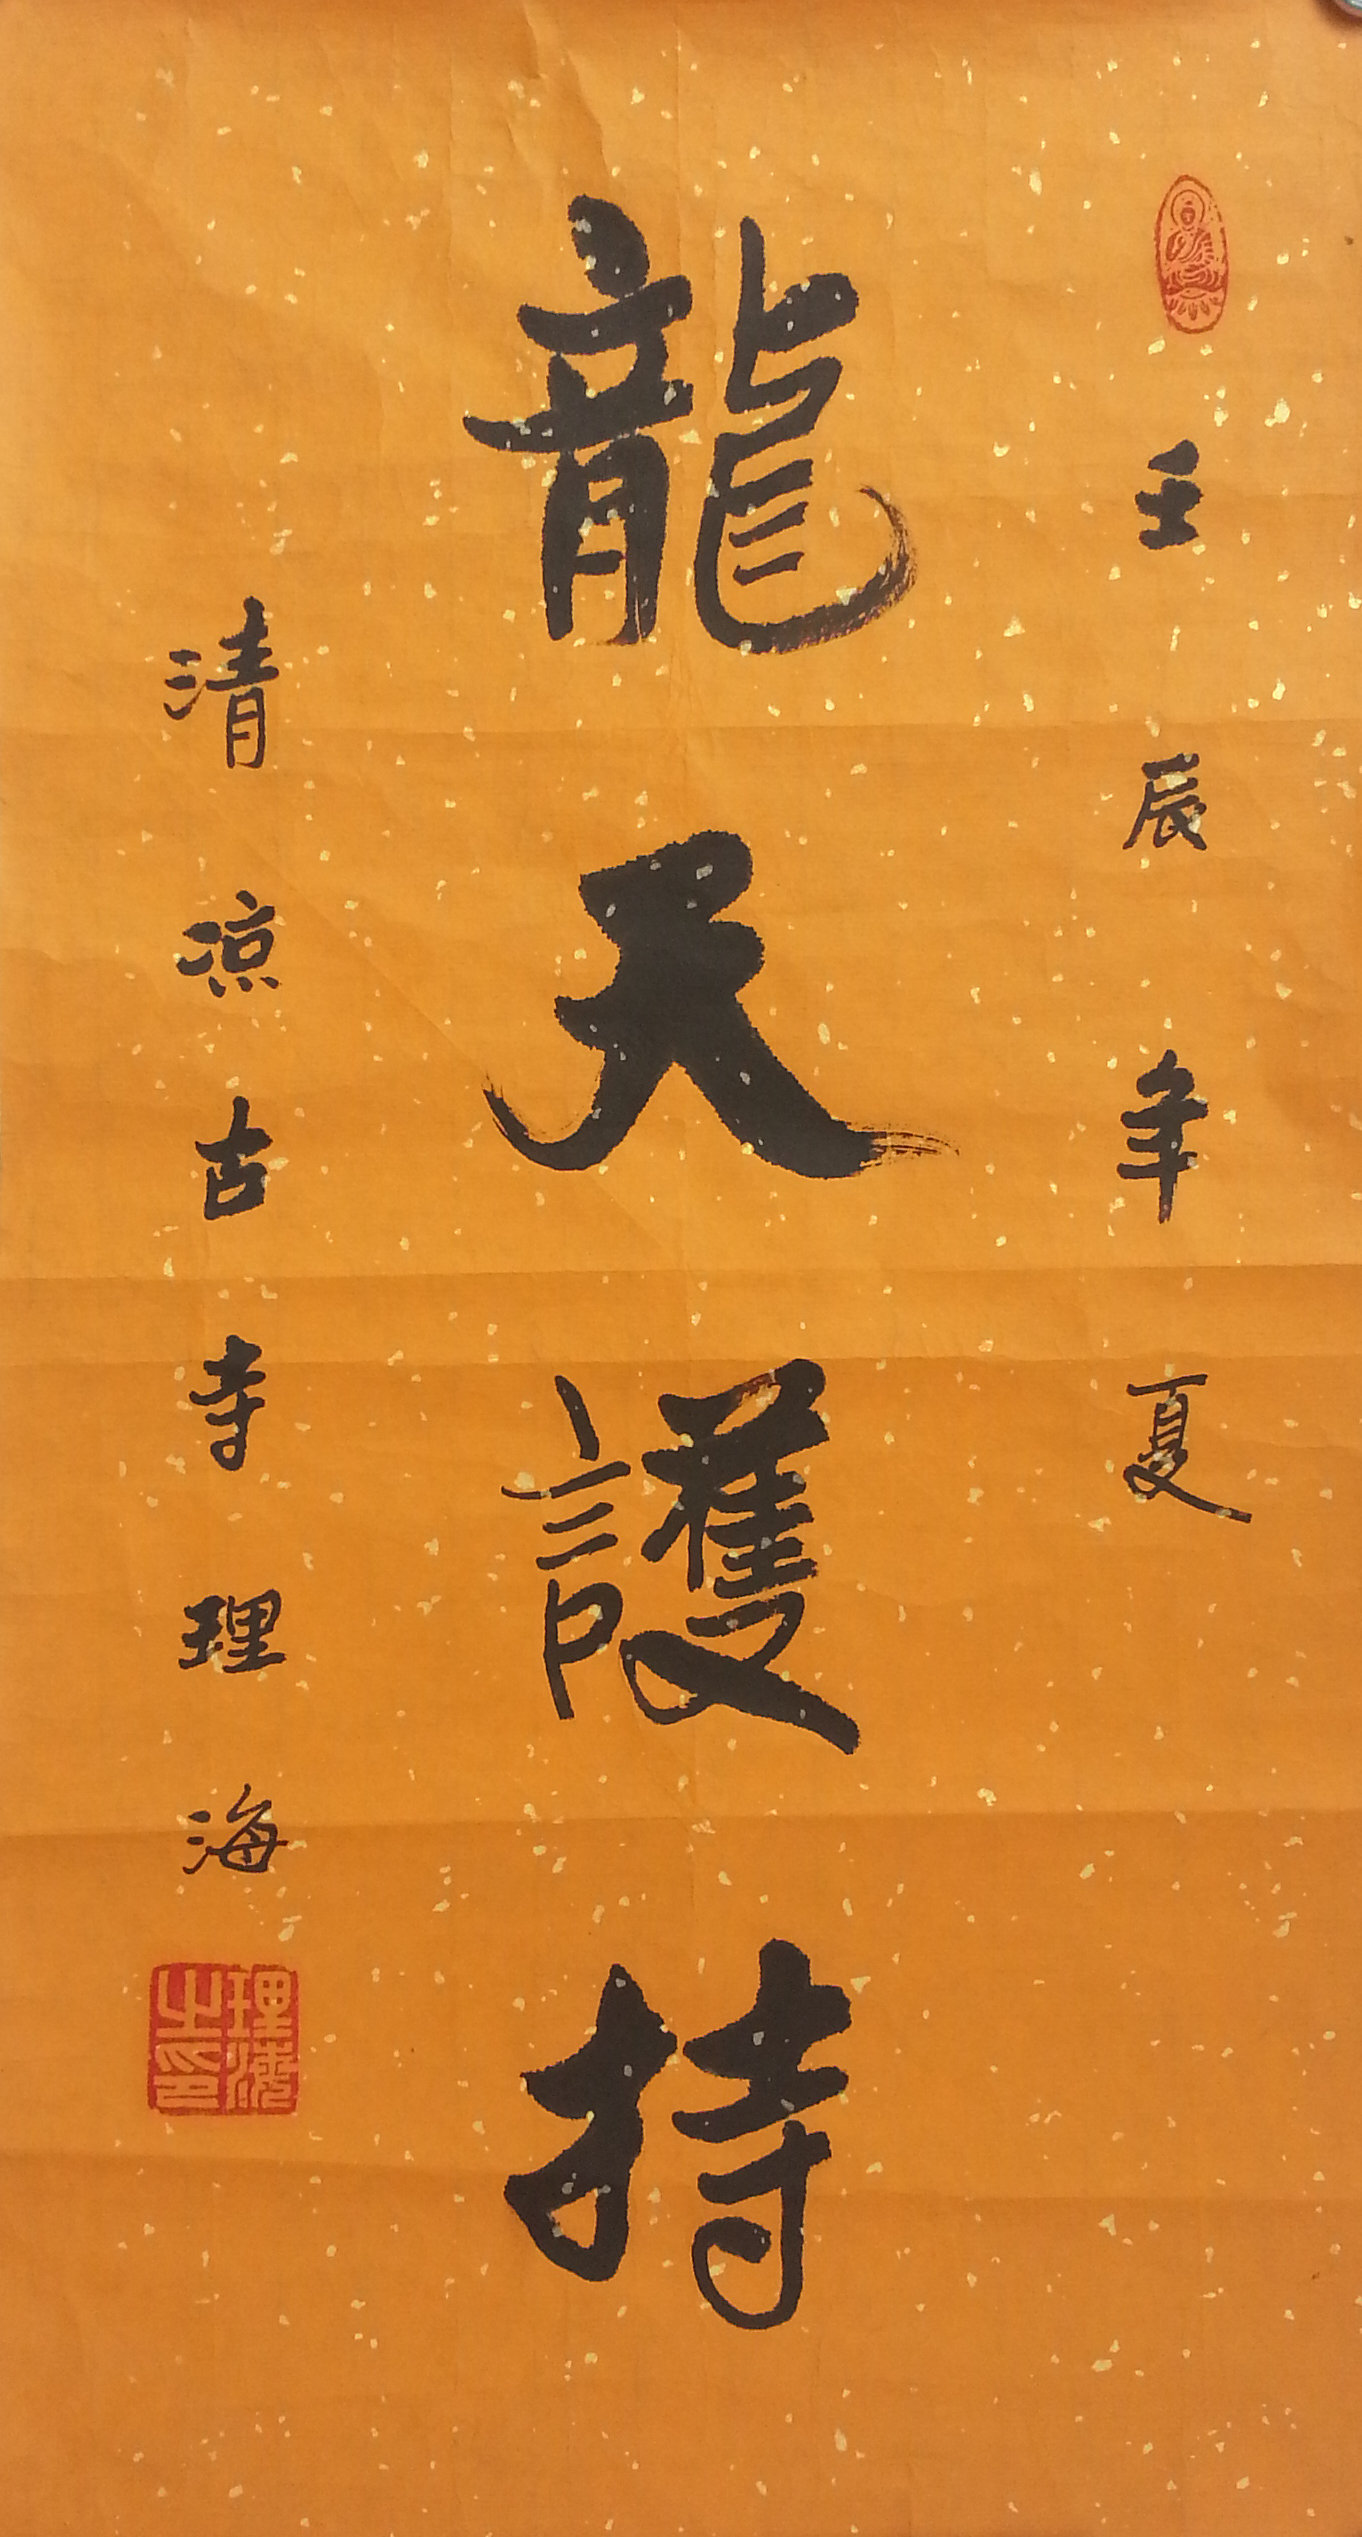 壬辰年夏
龍天護持
清凉古寺理海
理海之印